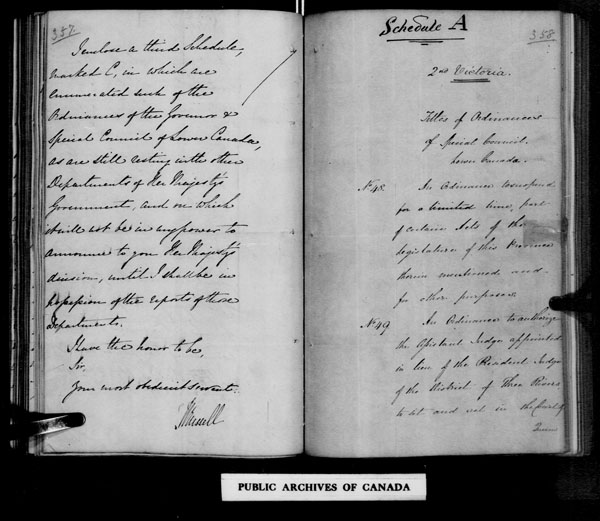 357
I enclose a third Schedule,
marked C, in which are
enumerated such of the
Ordinances of the Governor &
Special Council of Lower Canada,
as are still resting with the other
Departments of Her Majesty's
Government, and on which
it will not be in my power to
announce to you Her Majesty's
decision, until I shall be in
possession of the reports of those
Departments.
I have the honor to be,
Sir,
Your most obedient servant.
J Russell
358
Schedule A
2nd Victoria.
Titles of Ordinances
of Special Council.
Lower Canada.
No 48.
An Ordinance to suspend
for a limited time, part
of certain Acts of the
Legislature of this Province
therein mentioned and
for other purposes.
No 49
An Ordinance to authorize
the Assistant Judge appointed
in lieu of the Resident Judge
of the District of Three Rivers
to sit and act in the Court of
Queen's
PUBLIC ARCHIVES OF CANADA